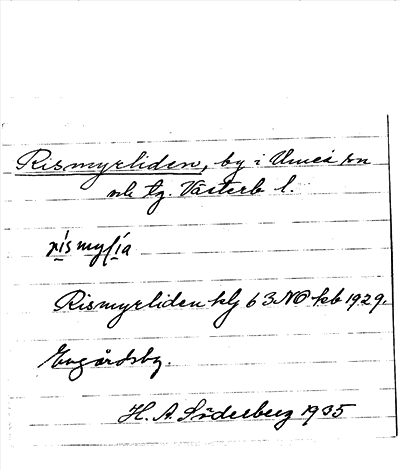 Rismyrliden, by i Umeå sn
nb tg. Västerb l.
rismyrlia
Rismyrliden klg 63 NO kb 1929.
Engårdsby.
H. A. Söderberg 1935